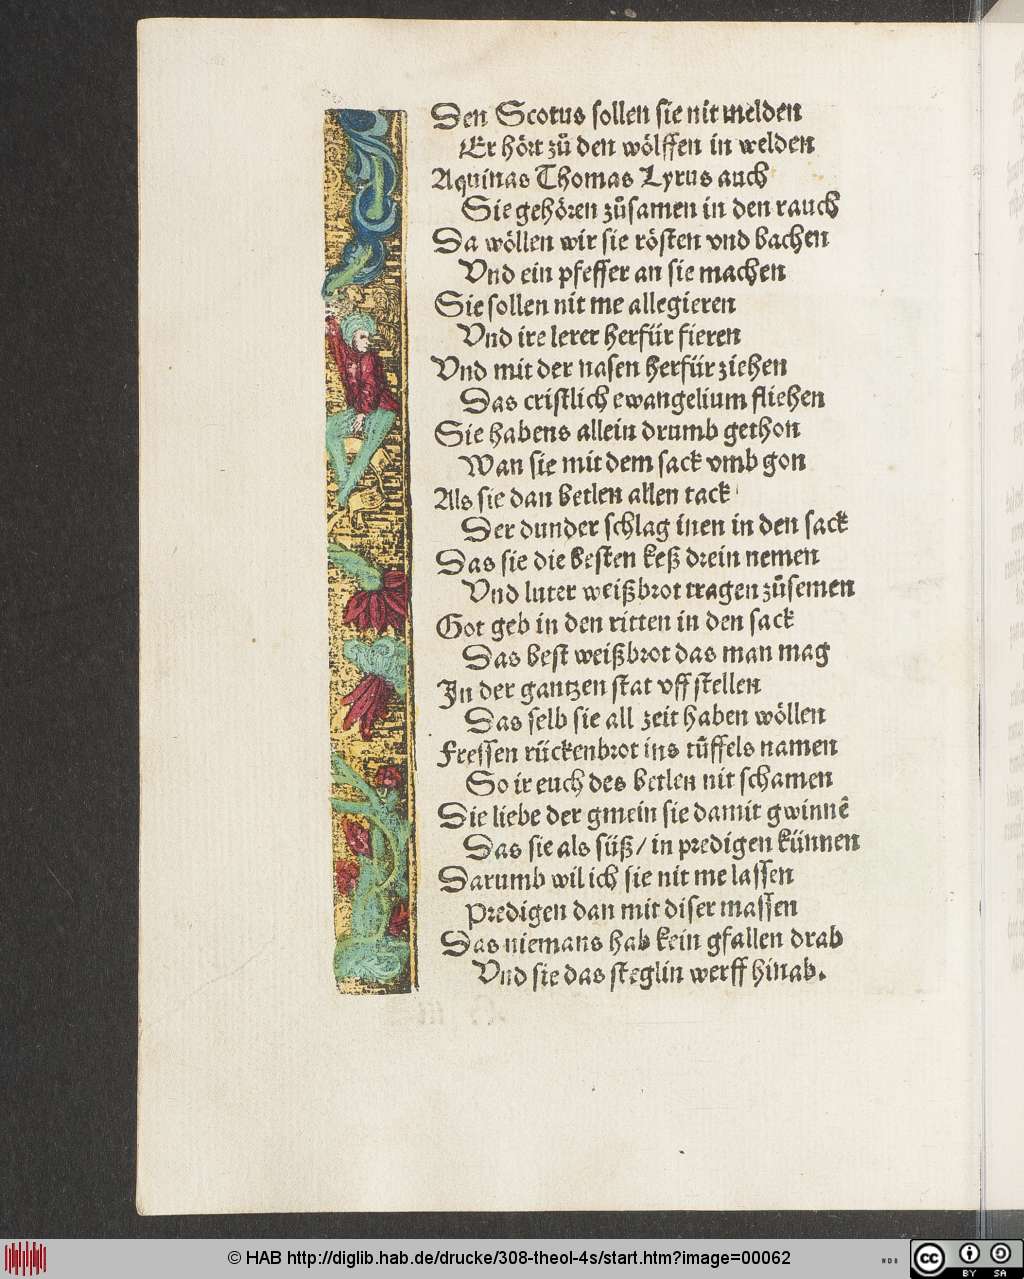 Den Scotus sollen sie nit melden
Er hört zů den wölffen in welden
Aquinas Thomas Lyrus auch
Sie gehören zůsamen in den rauch
Da wöllen wir sie rösten vnd bachen
Vnd ein pfeffer an sie machen
Sie sollen nit me allegieren
Vnd ire lerer herfür fieren
Vnd mit der nasen herfür ziehen
Das cristlich ewangelium fliehen
Sie habens allein drumb gethon
Wan sie mit dem sack vmb gon
Als sie dan betlen allen tack
Der dunder schlag inen in den sack
Das sie die besten keß drein nemen
Vnd luter weißbrot tragen zůsemen
Got geb in den ritten in den sack
Das best weißbrot das man mag
In der gantzen stat vff stellen
Das selb sie all zeit haben wöllen
Fressen rückenbrot ins tüffels namen
So ir euch des betlen nit schamen
Die liebe der gmein sie damit gwinnē
Das sie als süß/ in predigen künnen
Darumb wil ich sie nit me lassen
Predigen dan mit diser massen
Das niemans hab kein gfallen drab
Vnd sie das steglin werff hinab.
© HAB http://diglib.hab.de/drucke/308-theol-4s/start.htm?image=00062
WDB
cc BY SA